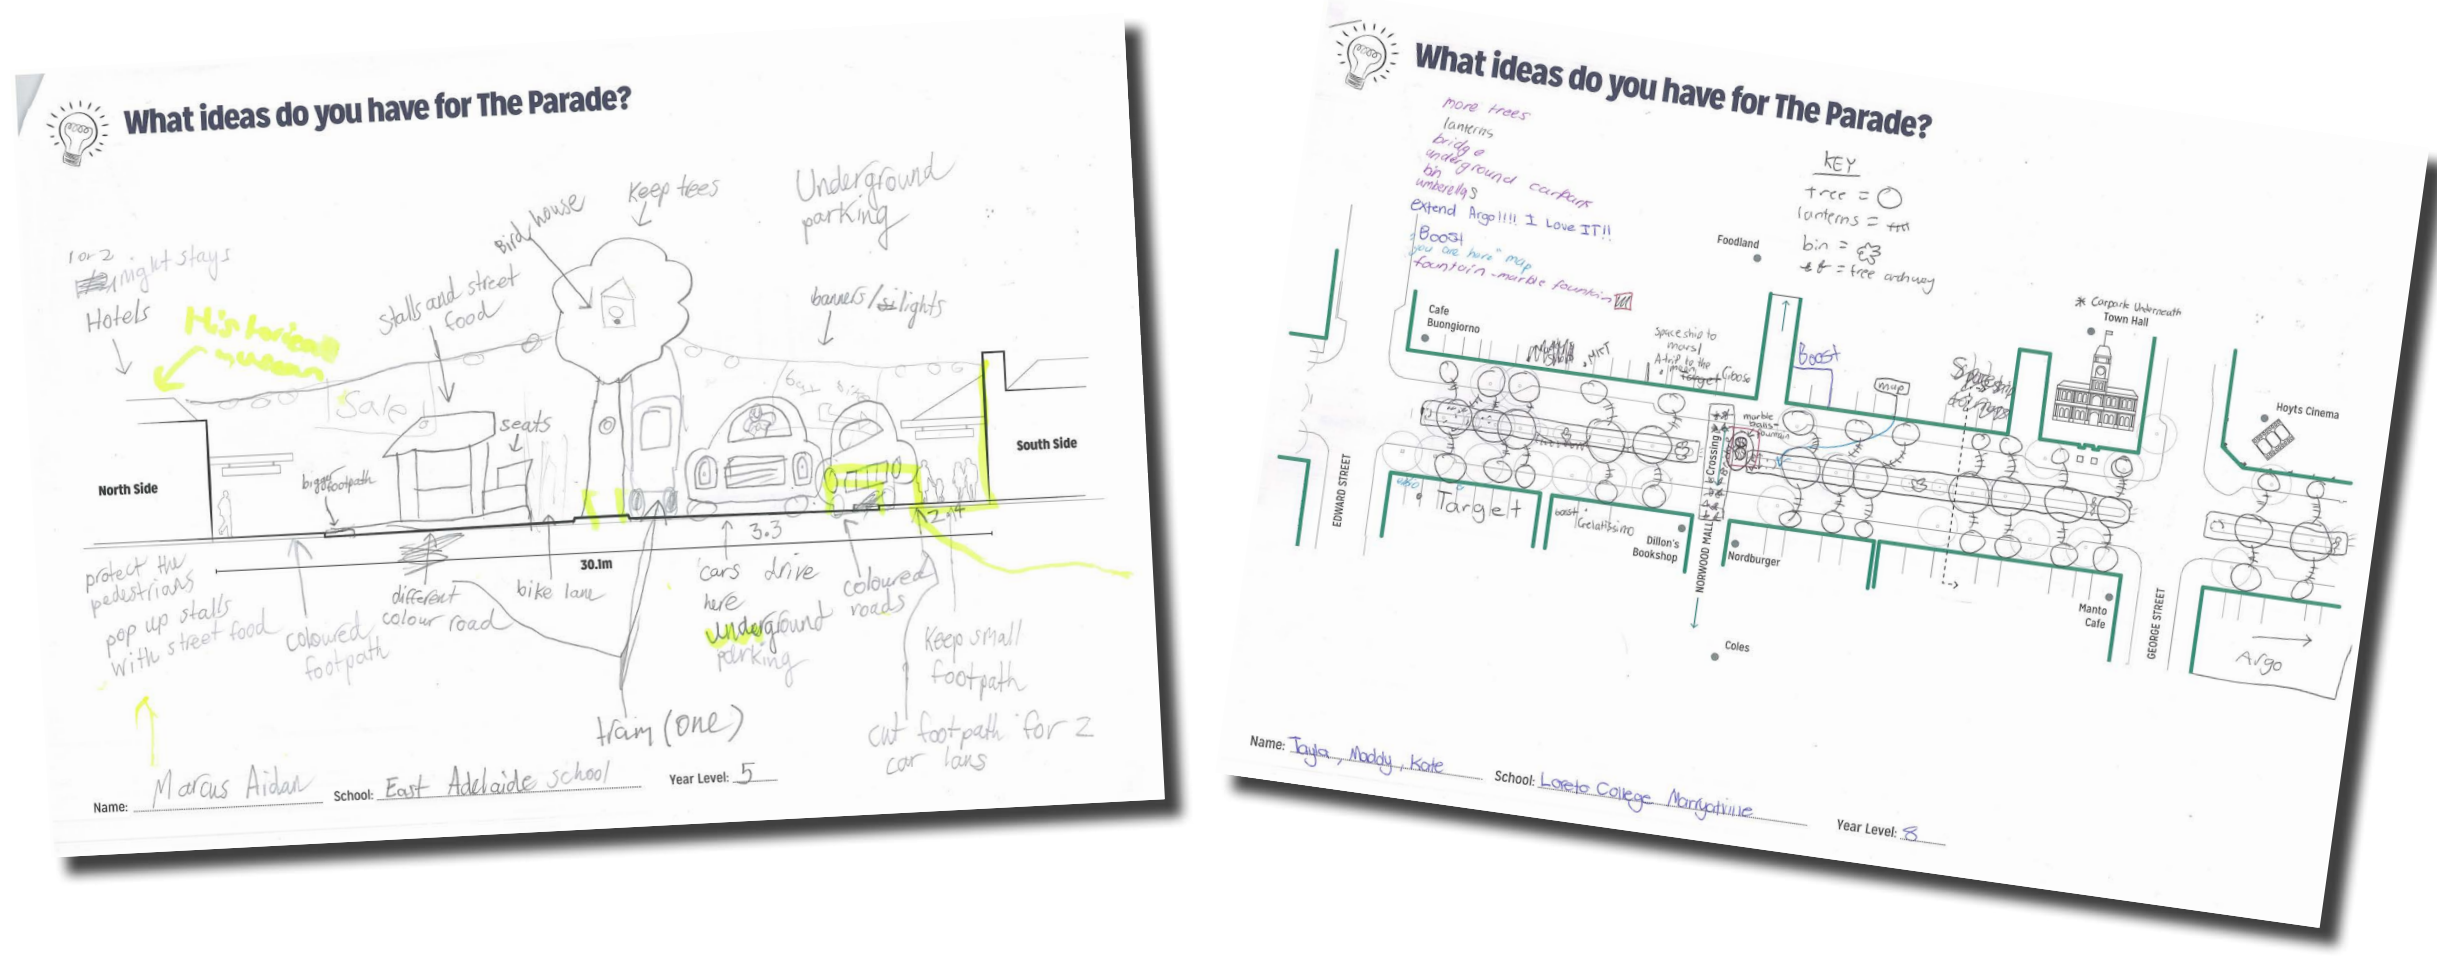 What ideas do you have for The Parade?
Keep trees
Underground
parking
Bird house
1 or 2
night stays
Hotels
Historical
stalls and street
food
banners/lights
Sale
seats
bigger footpath
North Side
South Side
2.4
3.3
30.1m
protect the
pedestrians
pop up stalls
with street food
coloured
footpath
different
colour road
bike lane
cars drive
here
underground
parking
coloured
roads
Keep small
footpath
tram (one)
cut footpath for 2
car lans
Name: Marcus Aidan School: East Adelaide school Year Level: 5
What ideas do you have for The Parade?
more trees
lanterns
bridge
underground carpark
bin
umberellas
extend Argo!!!! I Love IT!!
Boost
"you are here" map
fountain - marble fountain
KEY
tree =
lanterns =
bin =
= tree archway
Foodland
* Carpark Underneath
Town Hall
Cafe
Buongiorno
Space ship to
mars/
A trip to the
moon
Boost
map
Hoyts Cinema
marble
balls-
fountain
Crossing
EDWARD STREET
Target
boost
Gelatissimo
Dillon's
Bookshop
NORWOOD MALL
Nordburger
Coles
Manto
Cafe
GEORGE STREET
Argo
Name: Tayla, Maddy, Kate School: Loreto College Marryatville Year Level: 8